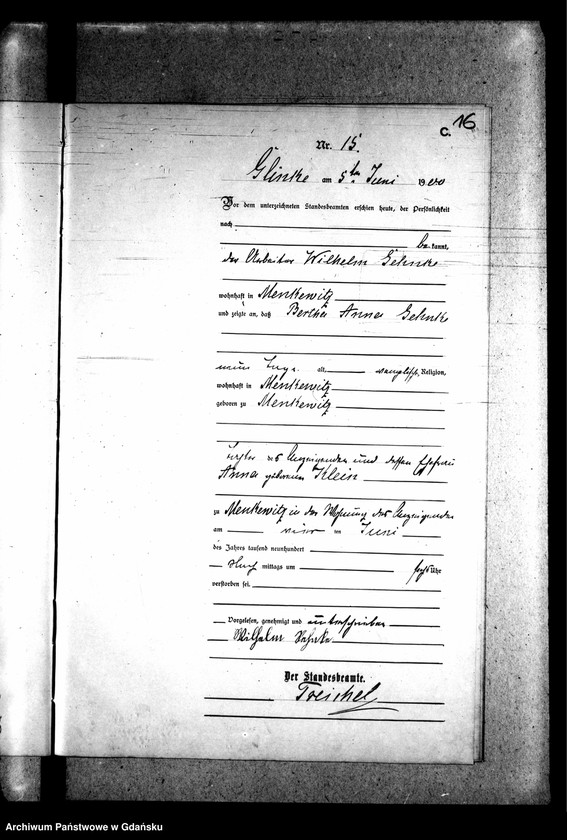 C. 16
Nr. 15.
Glinke am 5ten Juni 1900
Vor dem unterzeichneten Standesbeamten erschien heute, der Persönlichkeit
nach
be kannt,
der Arbeiter Wilhelm Gehnke
wohnhaft in Menkewitz
und zeigte an, daß Bertha Anna Gehnke
neun Tage alt, evangelisch Religion,
wohnhaft in Menkewitz
geboren zu Menkewitz
Tochter des Anzeigenden und dessen Ehefrau
Anna geborenen Klein
zu Menkewitz in der Wohnung des Anzeigenden
am vier ten Juni
des Jahres tausend neunhundert
Nach mittags um sechs Uhr
verstorben sei.
Vorgelesen, genehmigt und unterschrieben
Wilhelm
Der Standesbeamte.
Treichel
Archiwum Państwowe w Gdańsku